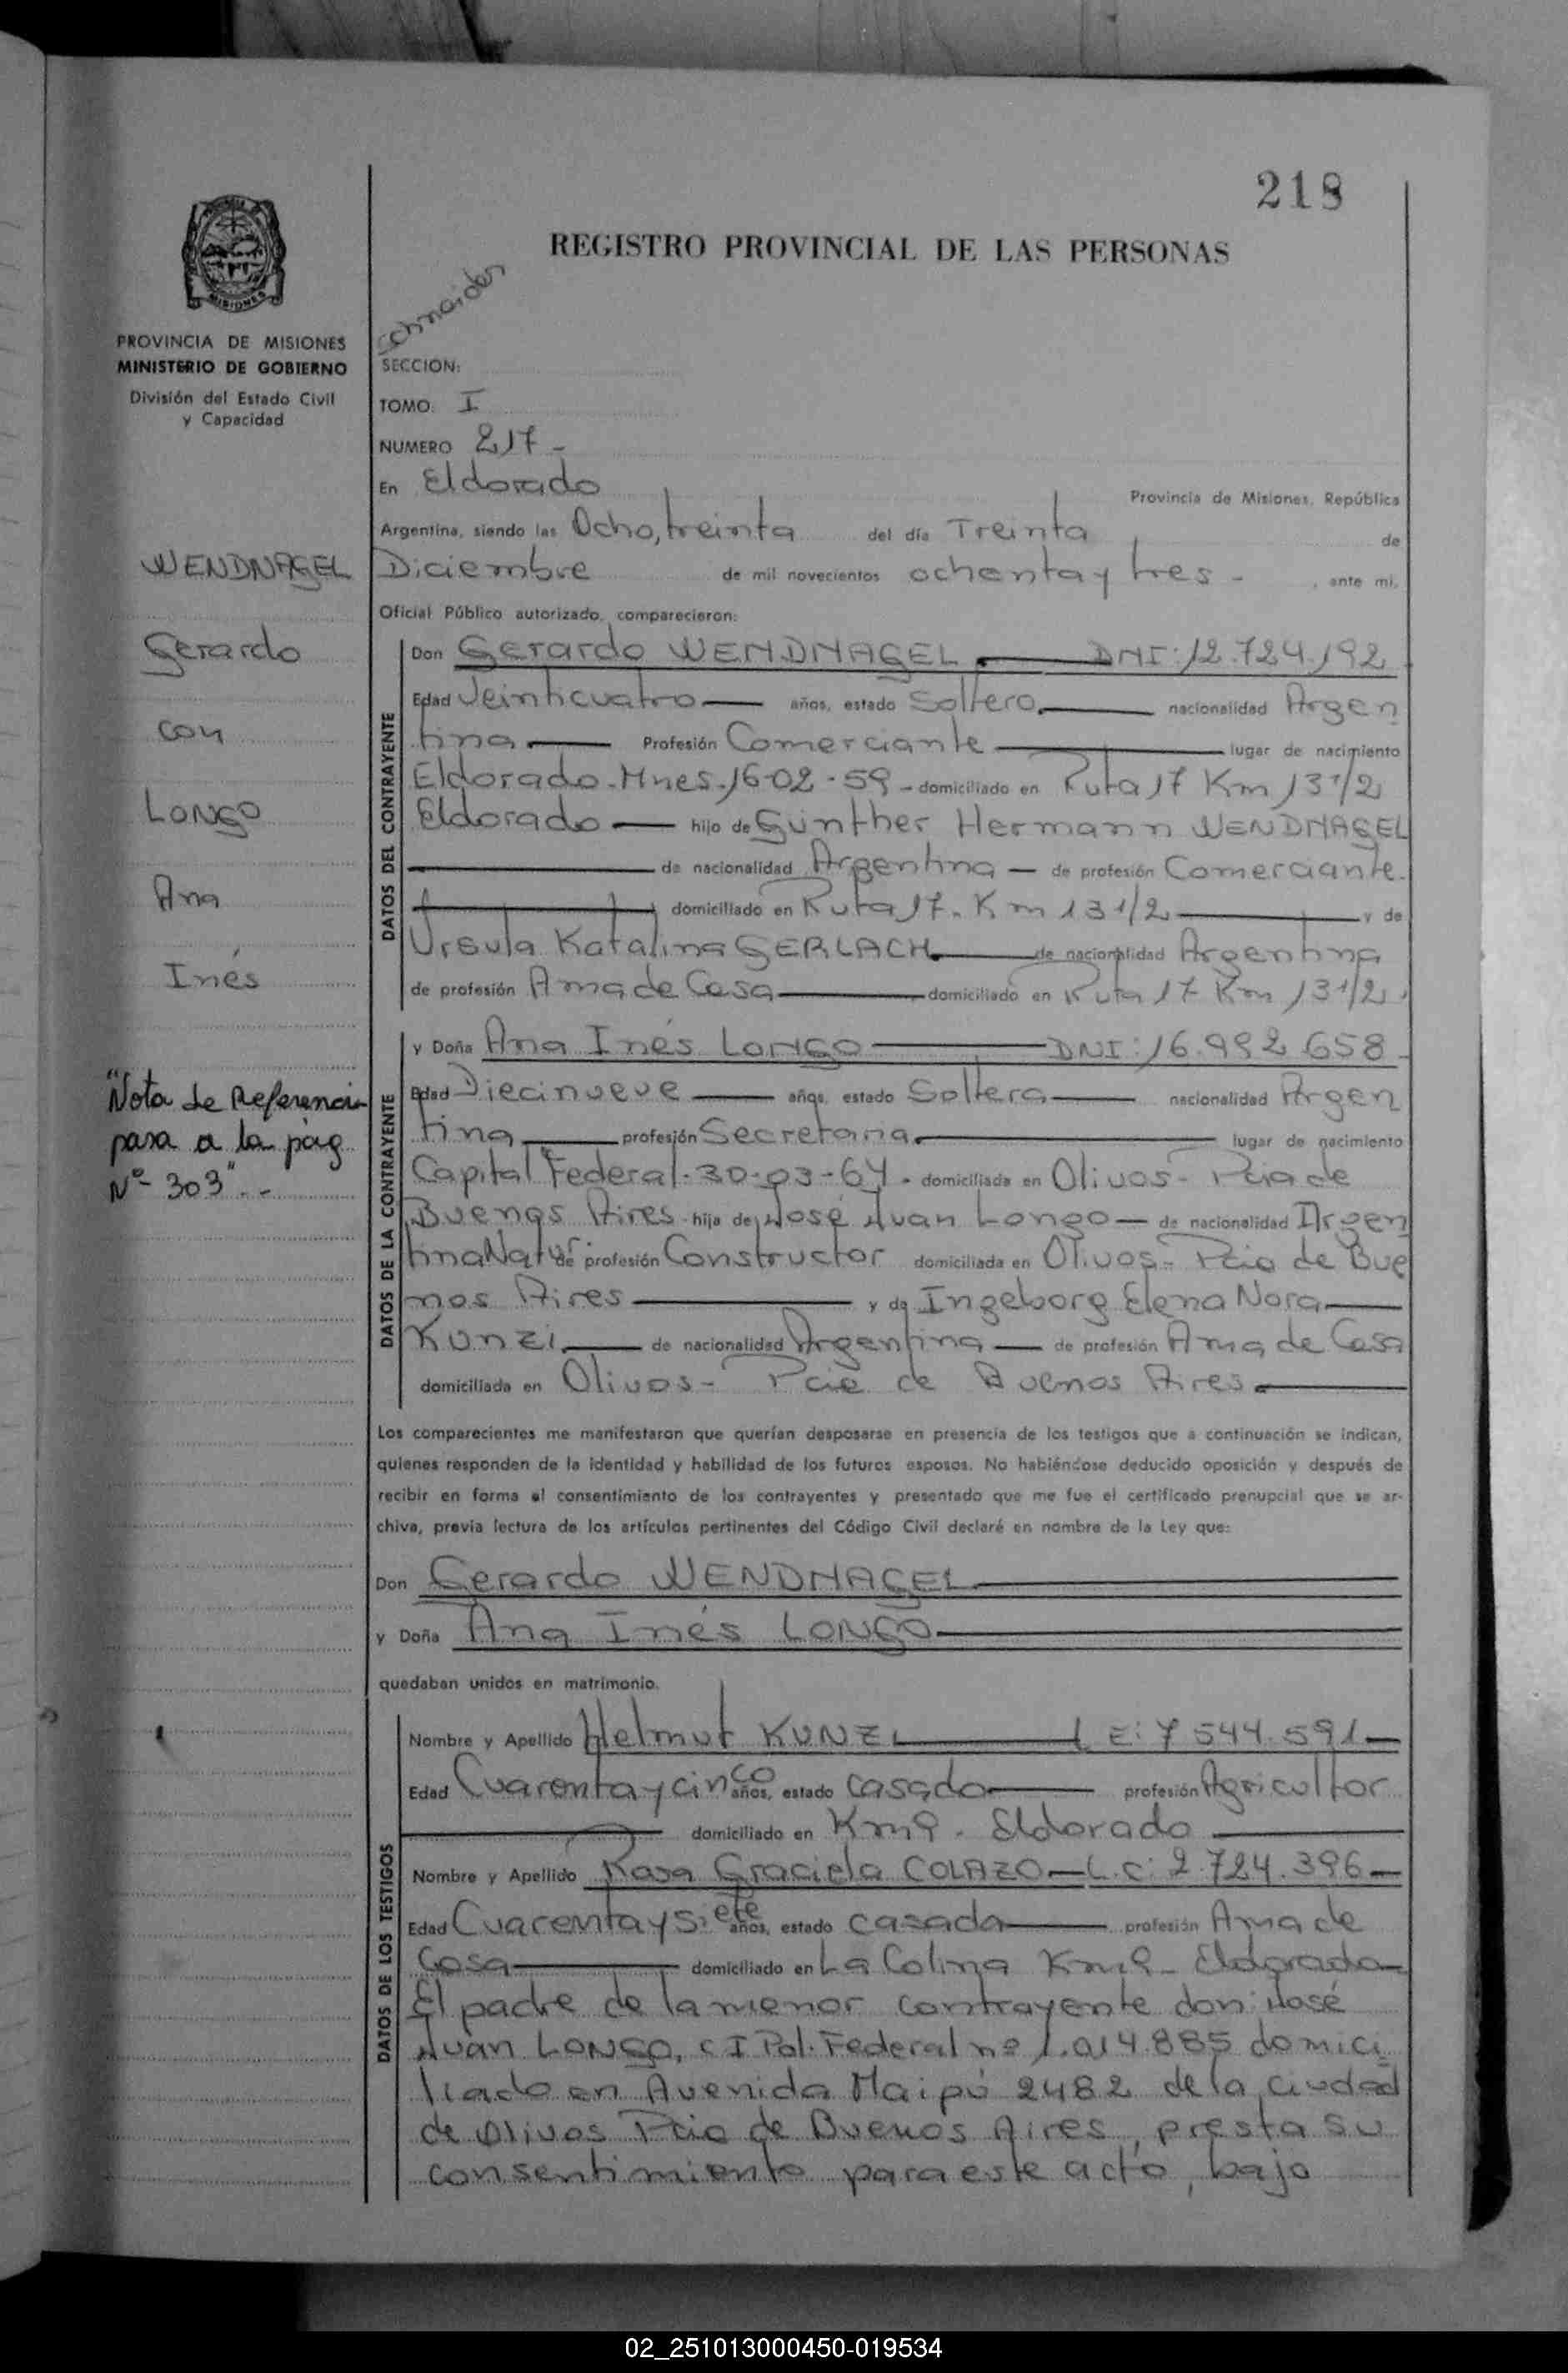 218
REGISTRO PROVINCIAL DE LAS PERSONAS
Schnaider
PROVINCIA DE MISIONES
MINISTERIO DE GOBIERNO
División del Estado Civil
y Capacidad
SECCION:
TOMO: I
NUMERO 217 -
En Eldorado Provincia de Misiones, República
Argentina, siendo las Ocho, treinta del día Treinta de
Diciembre de mil novecientos ochenta y tres - , ante mi,
Oficial Público autorizado, comparecieron:
WENDNAGEL
Gerardo
con
LONGO
Ana
Inés
"Nota de Referencia
pasa a la pág
Nº 303" . -
DATOS DEL CONTRAYENTE
Don Gerardo WENDNAGEL. DNI: 12.724.192
Edad Veinticuatro años, estado Soltero. nacionalidad Argen
tina Profesión Comerciante lugar de nacimiento
Eldorado - Mnes. 16-02-59 - domiciliado en Ruta 17 Km 13 1/2
Eldorado hijo de Günther Hermann WENDNAGEL
de nacionalidad Argentina - de profesión Comerciante.
domiciliado en Ruta 17. Km 13 1/2 y de
Ursula Katalina GERLACH. de nacionalidad Argentina
de profesión Ama de Casa domiciliado en Ruta 17 Km 13 1/2.
DATOS DE LA CONTRAYENTE
y Doña Ana Inés LONGO DNI: 16.992.658
Edad Diecinueve años, estado Soltera nacionalidad Argen
tina profesión Secretaria. lugar de nacimiento
Capital Federal - 30-03-64. domiciliada en Olivos - Pcia de
Buenos Aires. hija de José Juan Longo - de nacionalidad Argen
tina Natur. de profesión Constructor domiciliada en Olivos - Pcia de Bue
nos Aires y de Ingeborg Elena Nora
Kunzi de nacionalidad Argentina - de profesión Ama de Casa
domiciliada en Olivos - Pcia de Buenos Aires.
Los comparecientes me manifestaron que querían desposarse en presencia de los testigos que a continuación se indican,
quienes responden de la identidad y habilidad de los futuros esposos. No habiéndose deducido oposición y después de
recibir en forma el consentimiento de los contrayentes y presentado que me fue el certificado prenupcial que se ar-
chiva, previa lectura de los artículos pertinentes del Código Civil declaré en nombre de la Ley que:
Don Gerardo WENDNAGEL
y Doña Ana Inés LONGO
quedaban unidos en matrimonio.
DATOS DE LOS TESTIGOS
Nombre y Apellido Helmut KUNZI L E: 7 544.591
Edad Cuarenta y cinco años, estado casado profesión Agricultor
domiciliado en Km 9 - Eldorado
Nombre y Apellido Rosa Graciela COLAZO - L.C: 2.724.396
Edad Cuarenta y siete años, estado casada profesión Ama de
Casa domiciliado en La Colina Km 9 - Eldorado
El padre de la menor contrayente don: José
Juan LONGO, C I Pol. Federal nº 1.014.885 domici
liado en Avenida Maipú 2482 de la ciudad
de Olivos Pcia de Buenos Aires, presta su
consentimiento para este acto, bajo
02_251013000450-019534